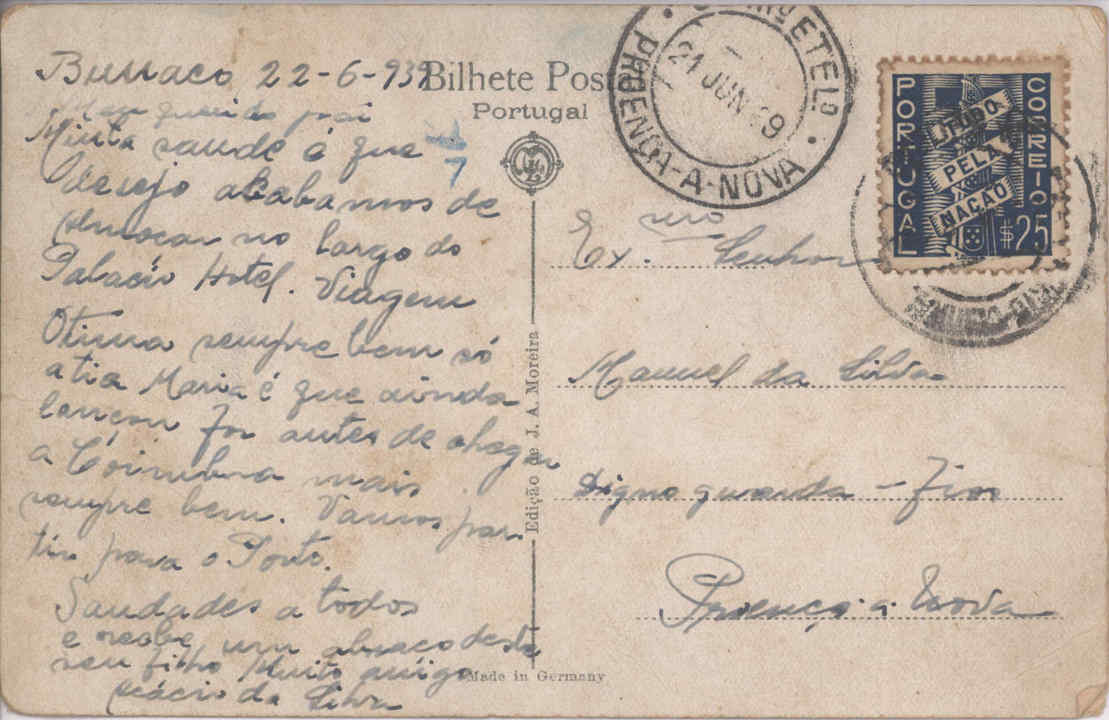 Bussaco 22-6-939
Meu querido pai
Muita saude é que
desejo acabamos de
almoçar no largo do
Palacio Hotel. Viagem
Otima sempre bem só
a tia Maria é que ainda
lançou foi antes de chegar
a Coimbra mais
sempre bem. Vamos par
tir para o Porto.
Saudades a todos
e recebe um abraço deste
seu filho Muito amigo
Acácio da Silva
Bilhete Postal
Portugal
Edição de J. A. Moreira
Made in Germany
CORREIO ETELº
PROENÇA-A-NOVA
21 JUN 39
PORTUGAL
CORREIO
TUDO
PELA
NAÇÃO
$25
Ex.mo Senhor
Manuel da Silva
Digno guarda-fios
Proença a Nova